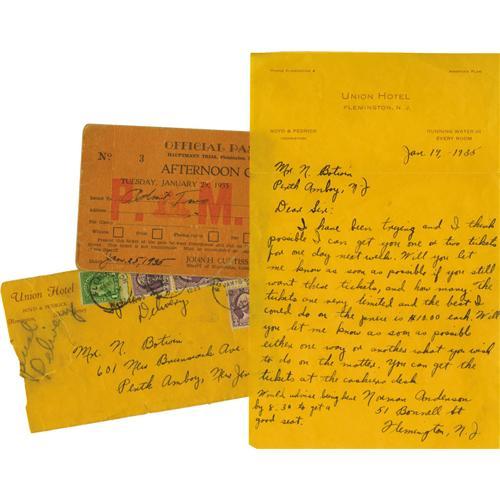 OFFICIAL PAS
HAUPTMANN TRIAL, Flemington,
No 3
AFTERNOON O
TUESDAY, JANUARY 29, 1935
P. M.
Address
JOHN H. CURTISS
Jan. 25, 1935
Union Hotel
BOYD & PEDRICK
Special
Delivery
Mr. N. Botwin
601 New Brunswick Ave
Perth Amboy, New Jer
PHONE FLEMINGTON 4
AMERICAN PLAN
UNION HOTEL
FLEMINGTON, N. J.
BOYD & PEDRICK
PROPRIETORS
RUNNING WATER IN
EVERY ROOM
Jan. 19, -1935
Mr. N. Botwin
Perth Amboy, N. J
Dear Sir:
I have been trying and I think
possible I can get you one or two tickets
for one day next week. Will you let
me know as soon as possible if you still
want these tickets, and how many the
tickets are very limited and the best I
could do on the price is $10.00 each. Will
you let me know as soon as possible
either one way or another what you wish
to do on the matter. You can get the
tickets at the cashiers desk
Would advise being here
by 8.30 to get a
good seat.
Norman Anderson
51 Bonnell St
Flemington, N. J.